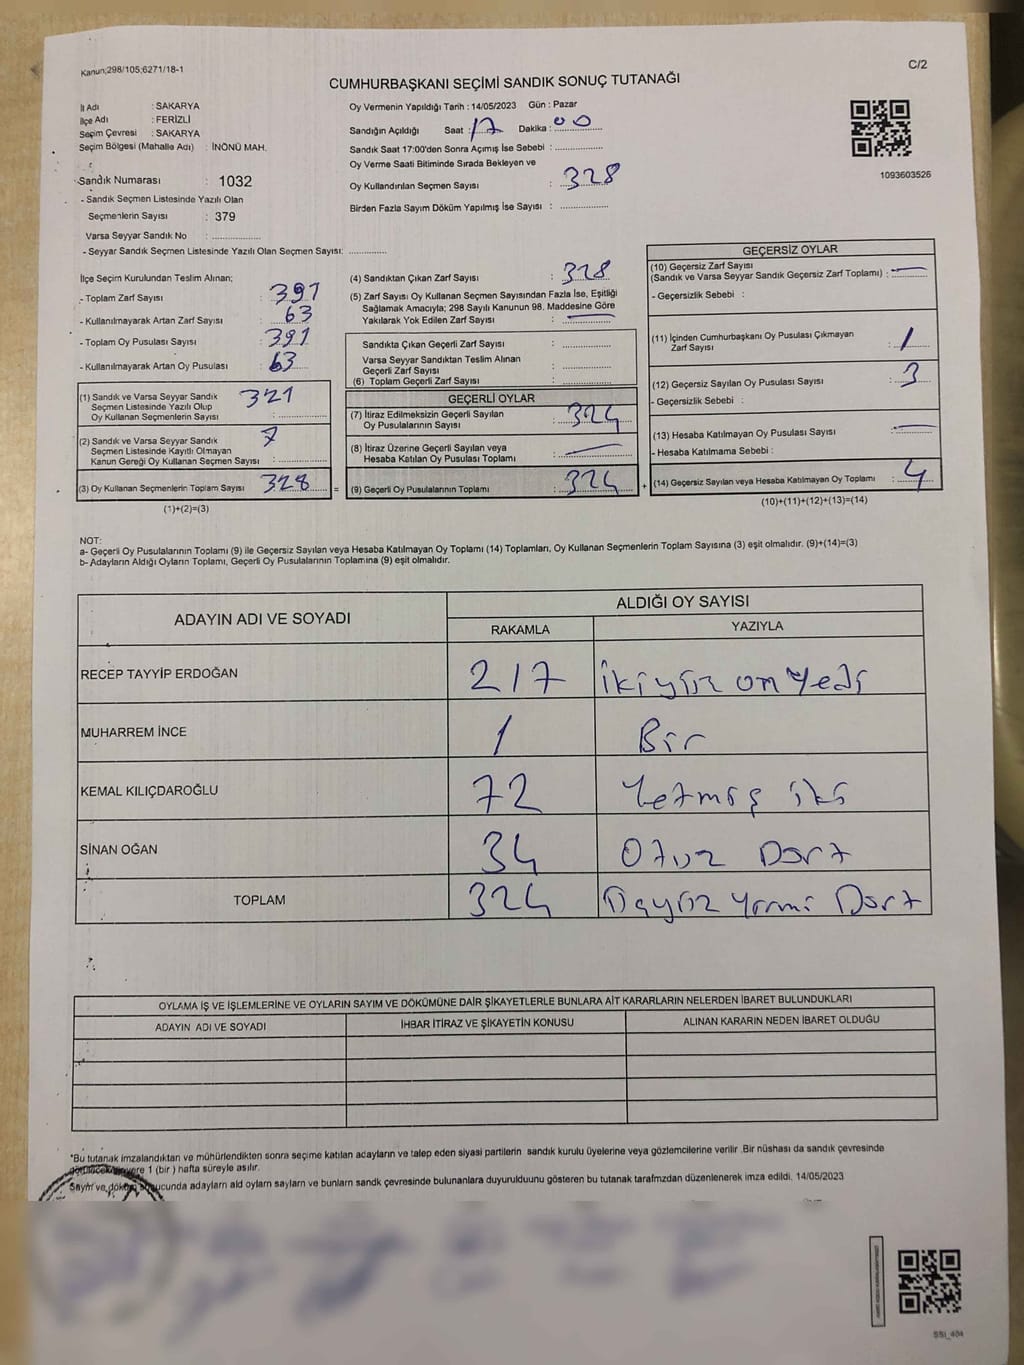 Kanun;298/105;6271/18-1
C/2
CUMHURBAŞKANI SEÇİMİ SANDIK SONUÇ TUTANAĞI
İl Adı : SAKARYA
İlçe Adı : FERİZLİ
Seçim Çevresi : SAKARYA
Seçim Bölgesi (Mahalle Adı) : İNÖNÜ MAH.
Sandık Numarası : 1032
- Sandık Seçmen Listesinde Yazılı Olan
Seçmenlerin Sayısı : 379
Varsa Seyyar Sandık No : ................
- Seyyar Sandık Seçmen Listesinde Yazılı Olan Seçmen Sayısı: .............
Oy Vermenin Yapıldığı Tarih : 14/05/2023 Gün : Pazar
Sandığın Açıldığı Saat : 17 Dakika : 00
Sandık Saat 17:00'den Sonra Açımış İse Sebebi : ................
Oy Verme Saati Bitiminde Sırada Bekleyen ve
Oy Kullandırılan Seçmen Sayısı : 328
Birden Fazla Sayım Döküm Yapılmış İse Sayısı : ................
1093603526
İlçe Seçim Kurulundan Teslim Alınan;
- Toplam Zarf Sayısı : 391
- Kullanılmayarak Artan Zarf Sayısı : 63
- Toplam Oy Pusulası Sayısı : 391
- Kullanılmayarak Artan Oy Pusulası : 63
(1) Sandık ve Varsa Seyyar Sandık 321
Seçmen Listesinde Yazılı Olup
Oy Kullanan Seçmenlerin Sayısı :
(2) Sandık ve Varsa Seyyar Sandık 7
Seçmen Listesinde Kayıtlı Olmayan
Kanun Gereği Oy Kullanan Seçmen Sayısı :
(3) Oy Kullanan Seçmenlerin Toplam Sayısı 328 =
(1)+(2)=(3)
(4) Sandıktan Çıkan Zarf Sayısı : 328
(5) Zarf Sayısı Oy Kullanan Seçmen Sayısından Fazla İse, Eşitliği
Sağlamak Amacıyla; 298 Sayılı Kanunun 98. Maddesine Göre
Yakılarak Yok Edilen Zarf Sayısı : —
Sandıkta Çıkan Geçerli Zarf Sayısı : ................
Varsa Seyyar Sandıktan Teslim Alınan
Geçerli Zarf Sayısı : ................
(6) Toplam Geçerli Zarf Sayısı : ................
GEÇERLİ OYLAR
(7) İtiraz Edilmeksizin Geçerli Sayılan
Oy Pusulalarının Sayısı : 324
(8) İtiraz Üzerine Geçerli Sayılan veya
Hesaba Katılan Oy Pusulası Toplamı : —
(9) Geçerli Oy Pusulalarının Toplamı : 324 +
GEÇERSİZ OYLAR
(10) Geçersiz Zarf Sayısı
(Sandık ve Varsa Seyyar Sandık Geçersiz Zarf Toplamı) : —
- Geçersizlik Sebebi :
(11) İçinden Cumhurbaşkanı Oy Pusulası Çıkmayan
Zarf Sayısı : 1
(12) Geçersiz Sayılan Oy Pusulası Sayısı : 3
- Geçersizlik Sebebi :
(13) Hesaba Katılmayan Oy Pusulası Sayısı : —
- Hesaba Katılmama Sebebi :
(14) Geçersiz Sayılan veya Hesaba Katılmayan Oy Toplamı : 4
(10)+(11)+(12)+(13)=(14)
NOT:
a- Geçerli Oy Pusulalarının Toplamı (9) ile Geçersiz Sayılan veya Hesaba Katılmayan Oy Toplamı (14) Toplamları, Oy Kullanan Seçmenlerin Toplam Sayısına (3) eşit olmalıdır. (9)+(14)=(3)
b- Adayların Aldığı Oyların Toplamı, Geçerli Oy Pusulalarının Toplamına (9) eşit olmalıdır.
ADAYIN ADI VE SOYADI
ALDIĞI OY SAYISI
RAKAMLA YAZIYLA
RECEP TAYYİP ERDOĞAN 217 ikiyüz on yedi
MUHARREM İNCE 1 Bir
KEMAL KILIÇDAROĞLU 72 Yetmiş iki
SİNAN OĞAN 34 Otuz Dört
TOPLAM 324 yirmi Dört
OYLAMA İŞ VE İŞLEMLERİNE VE OYLARIN SAYIM VE DÖKÜMÜNE DAİR ŞİKAYETLERLE BUNLARA AİT KARARLARIN NELERDEN İBARET BULUNDUKLARI
ADAYIN ADI VE SOYADI
İHBAR İTİRAZ VE ŞİKAYETİN KONUSU
ALINAN KARARIN NEDEN İBARET OLDUĞU
*Bu tutanak imzalandıktan ve mühürlendikten sonra seçime katılan adayların ve talep eden siyasi partilerin sandık kurulu üyelerine veya gözlemcilerine verilir .Bir nüshası da sandık çevresinde
yere 1 (bir ) hafta süreyle asılır.
Sayım ve döküm sonucunda adayların ald oyların sayları ve bunların sandk çevresinde bulunanlara duyurulduunu gösteren bu tutanak tarafmzdan düzenlenerek imza edildi. 14/05/2023
SSI_404